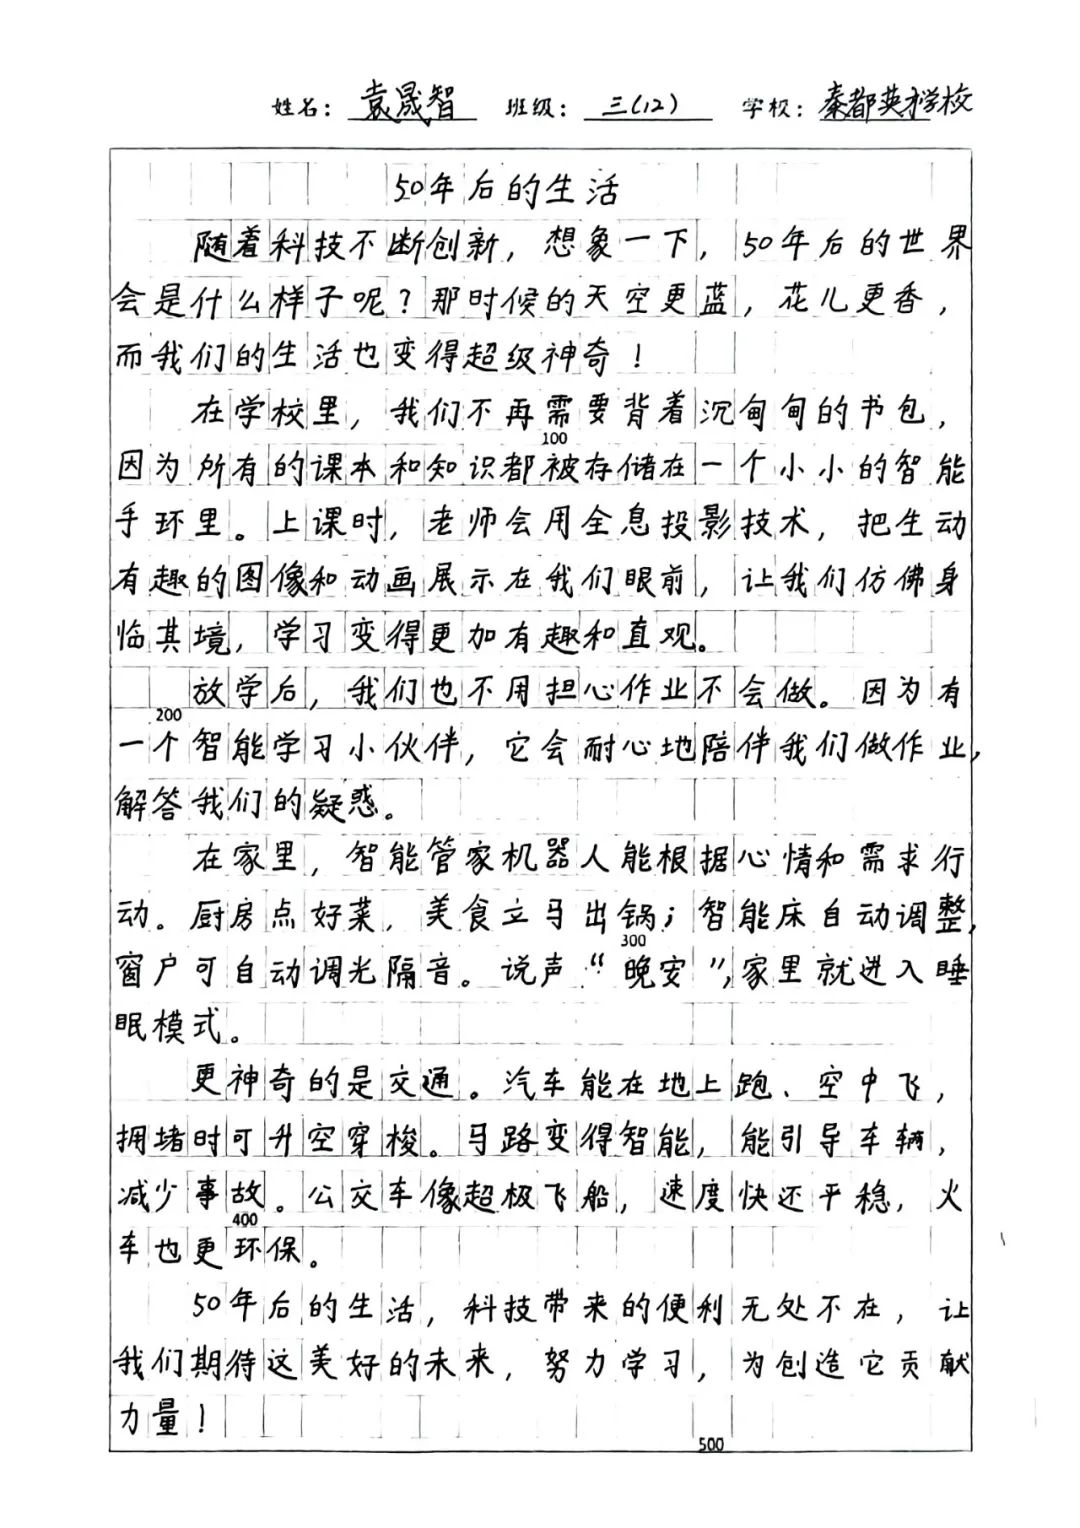 姓名：袁晟智 班级：三(12) 学校：秦都英才学校
50年后的生活
随着科技不断创新，想象一下，50年后的世界
会是什么样子呢？那时候的天空更蓝，花儿更香，
而我们的生活也变得超级神奇！
在学校里，我们不再需要背着沉甸甸的书包，
100
因为所有的课本和知识都被存储在一个小小的智能
手环里。上课时，老师会用全息投影技术，把生动
有趣的图像和动画展示在我们眼前，让我们仿佛身
临其境，学习变得更加有趣和直观。
放学后，我们也不用担心作业不会做。因为有
200
一个智能学习小伙伴，它会耐心地陪伴我们做作业，
解答我们的疑惑。
在家里，智能管家机器人能根据心情和需求行
动。厨房点好菜，美食立马出锅；智能床自动调整，
300
窗户可自动调光隔音。说声“晚安”，家里就进入睡
眠模式。
更神奇的是交通。汽车能在地上跑、空中飞，
拥堵时可升空穿梭。马路变得智能，能引导车辆，
减少事故。公交车像超极飞船，速度快还平稳，火
400
车也更环保。
50年后的生活，科技带来的便利无处不在，让
我们期待这美好的未来，努力学习，为创造它贡献
力量！
500